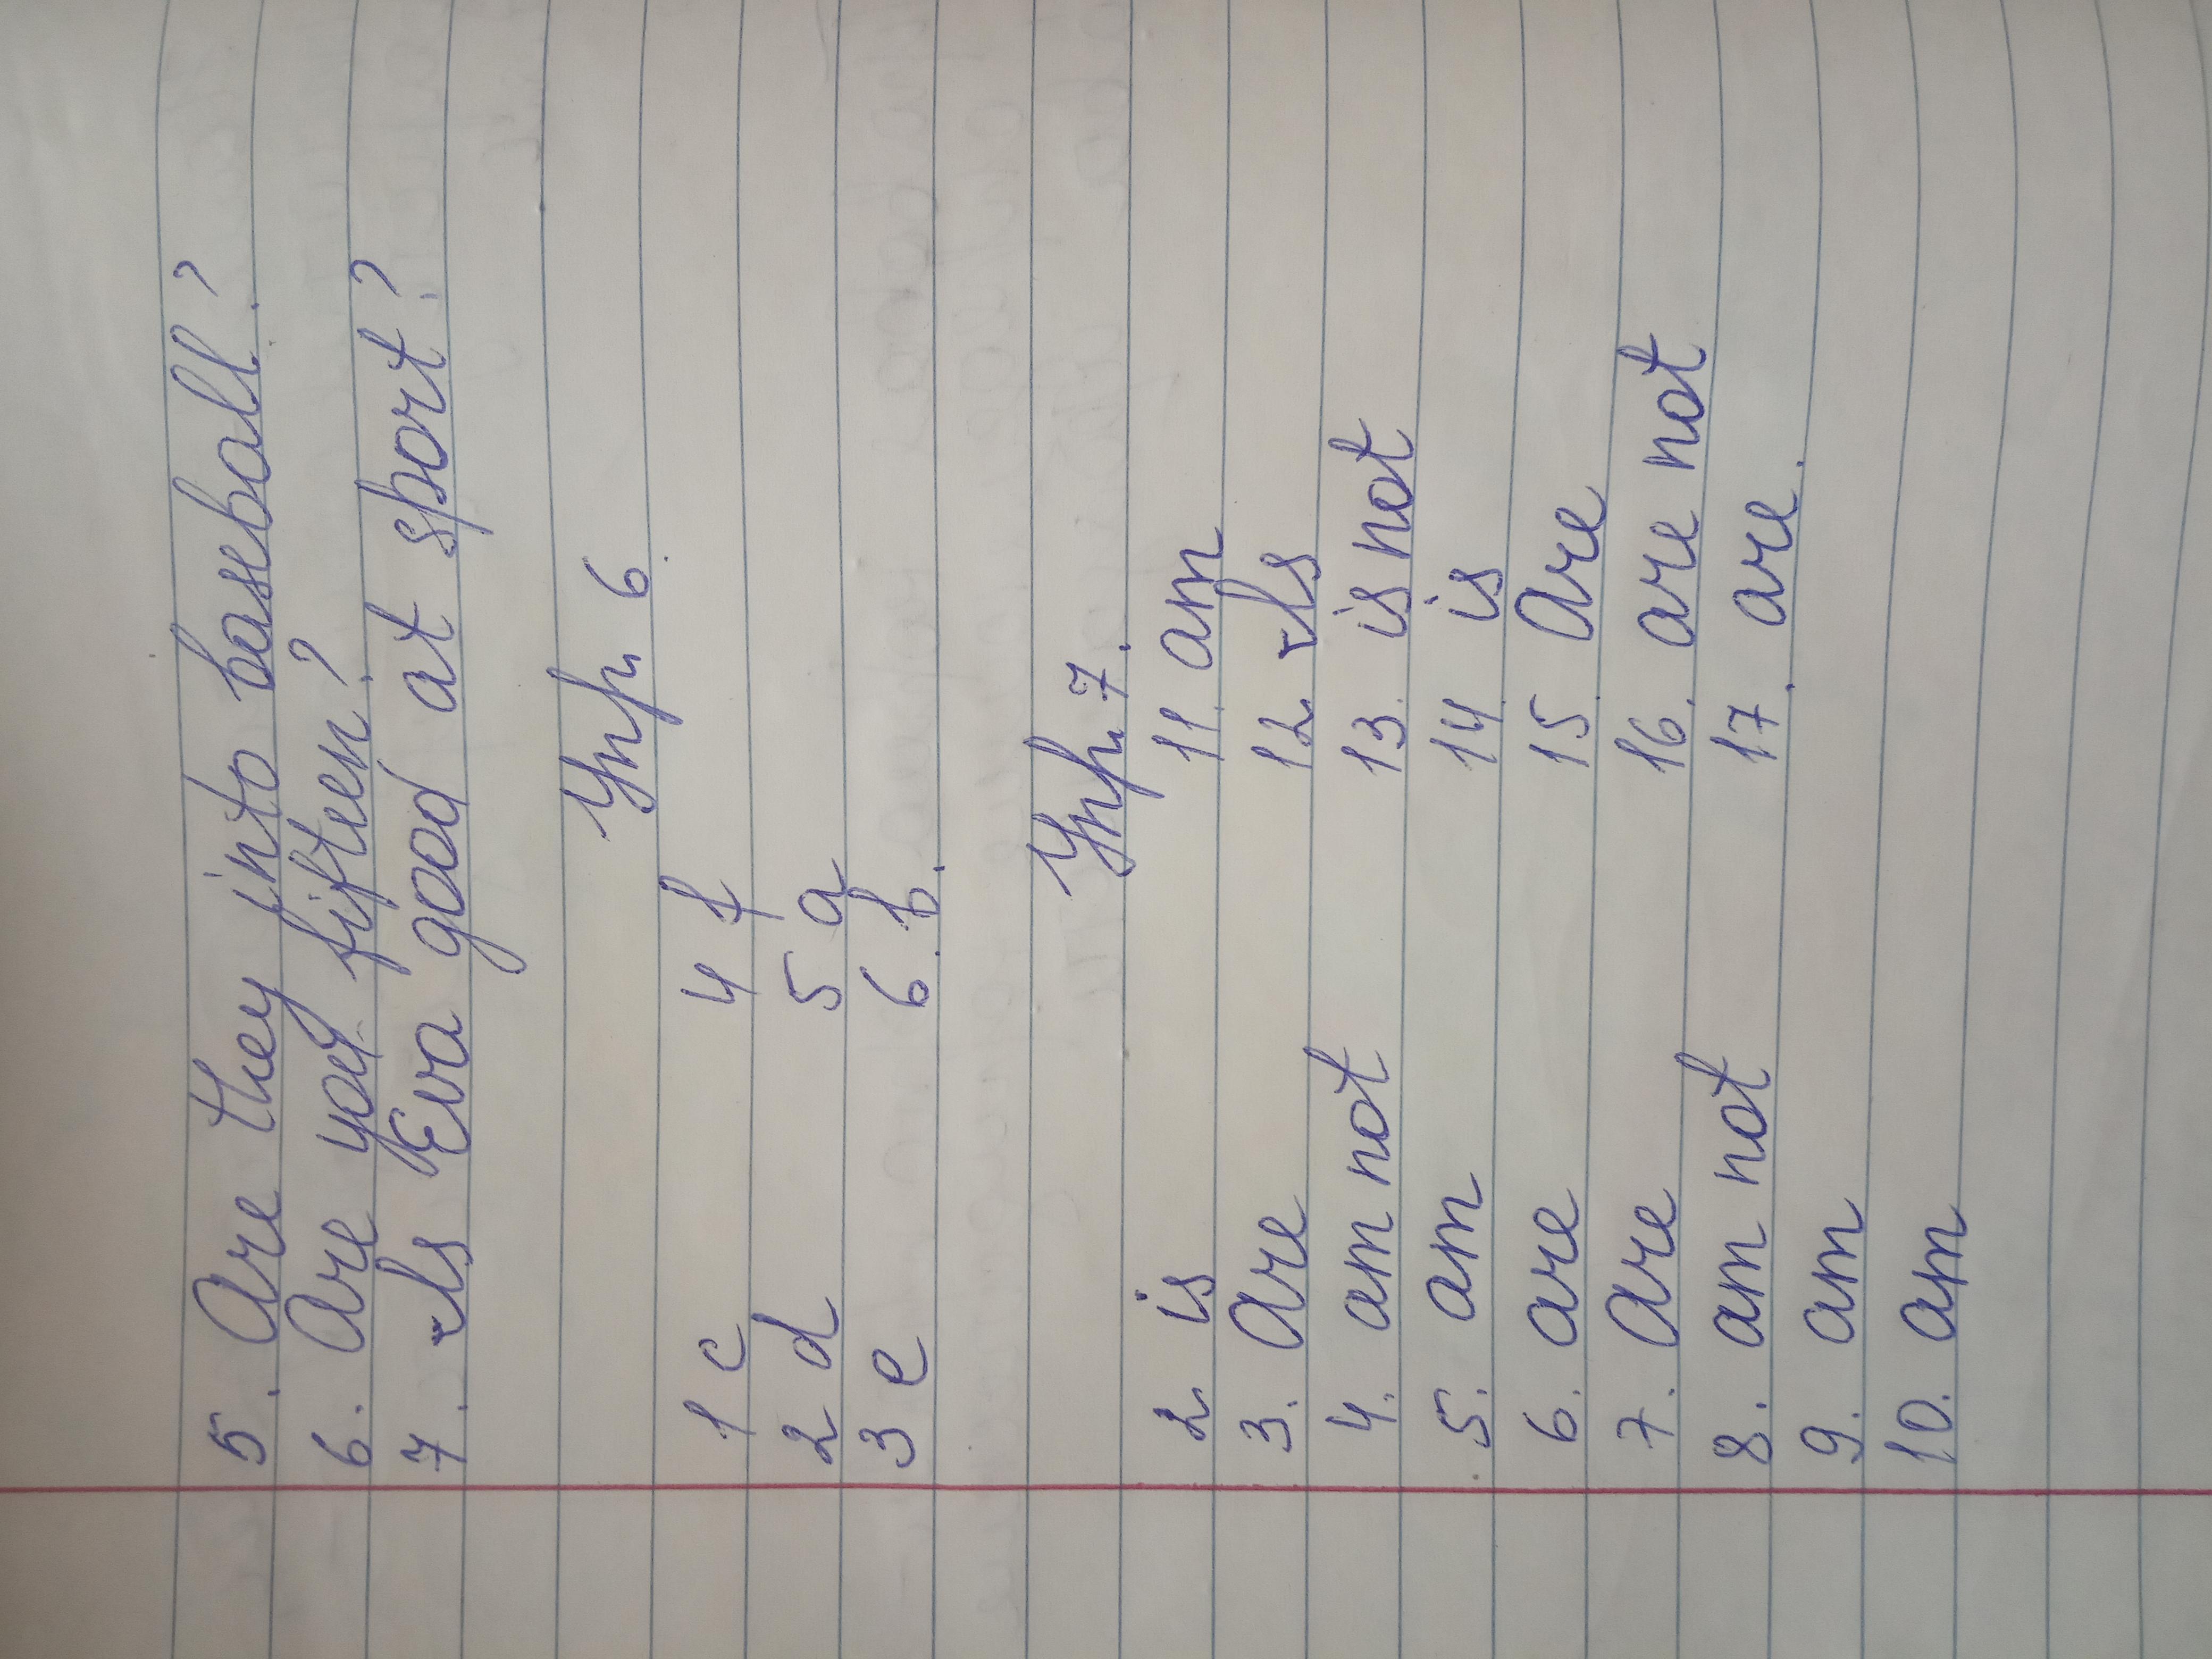 5. Are they into baseball?
6. Are you fifteen?
7. Is Eva good at sport?
Упр. 6
1 c 4 f
2 d 5 a
3 e 6. b.
Упр. 7.
2 is 11. am
3. Are 12 Is
4. am not 13. is not
5. am 14 is
6. are 15. Are
7. Are 16. are not
8. am not 17. are.
9. am
10. am